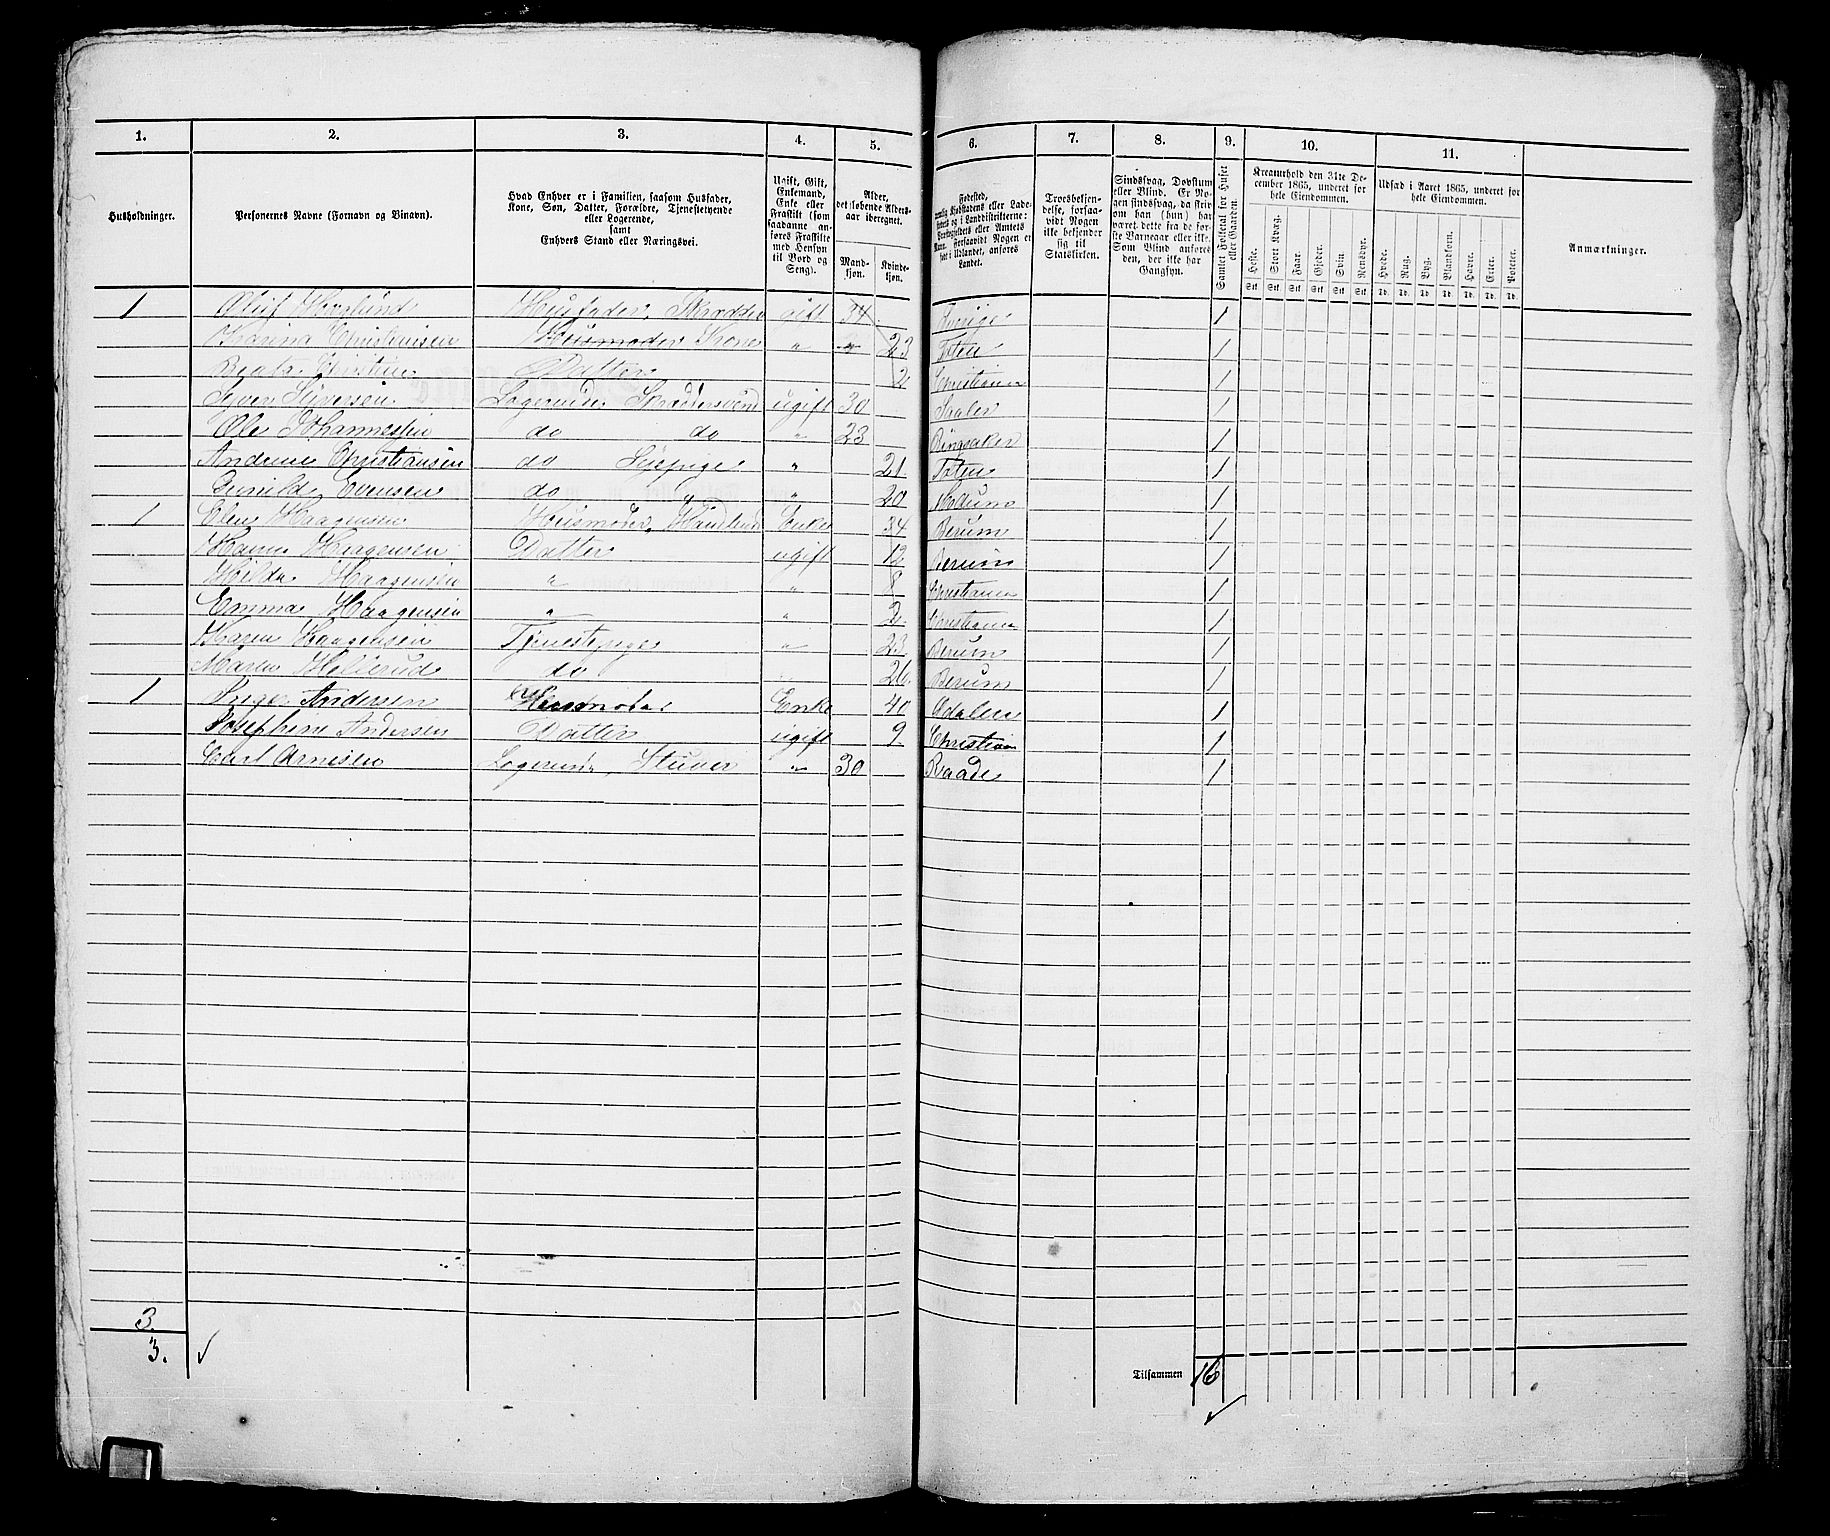 1. 2. 3. 4. 5. 6. 7. 8. 9. 10. 11.
Husholdninger.
Personernes Navne (Fornavn og Binavn).
Hvad Enhver er i Familien, saasom Husfader, Kone, Søn, Datter, Forældre, Tjenestetyende eller Logerende, samt Enhvers Stand eller Næringsvei.
Ugift, Gift, Enkemand, Enke eller Fraskilt (som saadanne anføres Fraskilte med Hensyn til Bord og Seng).
Alder, det løbende Aldersaar iberegnet.
Mandkjøn. Kvindekjøn.
Fødested,
Troesbekjendelse, forsaavidt Nogen ikke bekjender sig til Statskirken.
Sindssvag, Døvstum eller Blind. Er Nogen sindssvag, da skrives om han (hun) har været dette fra de første Barneaar eller ikke. Som Blind anføres den, der ikke har Gangsyn.
Samlet Folketal for Huset eller Gaarden.
Kreaturhold den 31te December 1865, underet for hele Eiendommen.
Heste. Stort Kvæg. Faar. Gjeder. Svin. Rensdyr.
Udsæd i Aaret 1865, underet for hele Eiendommen.
Hvede. Rug. Byg. Blandkorn. Havre. Erter. Poteter.
Anmærkninger.
Stk. Stk. Stk. Stk. Stk. Stk. Td. Td. Td. Td. Td. Td. Td.
1 Oluf Haglund Husfader, Skrædder gift 34 Sverige 1
Karina Christiansen Husmoder Kone " 23 Toten 1
Datter 2 Christiania 1
Syver Siversen Logerende Skrædersvend ugift 30 1
Ole Johannessen do do " 23 Ringsaker 1
Andrine Christiansen do Sypige " 21 Toten 1
Gunild Evensen do " " 20 Modum 1
1 Elen Haagensen Husmoder, Enke 34 Berum 1
Hanna Haagensen Datter ugift 12 Berum 1
Hilda Haagensen " " 8 Christiania 1
Emma Haagensen " " 2 Christiania 1
Karen Haagensen Tjenestepige " 23 Berum 1
Maren do " 26 Berum 1
1 Inger Andersen Husmoder Enke 40 Aadalen 1
Josephine Andersen Datter ugift 9 Christiania 1
Carl Arnesen Logerende, Stuver " 30 Raade 1
3
3.
Tilsammen 16